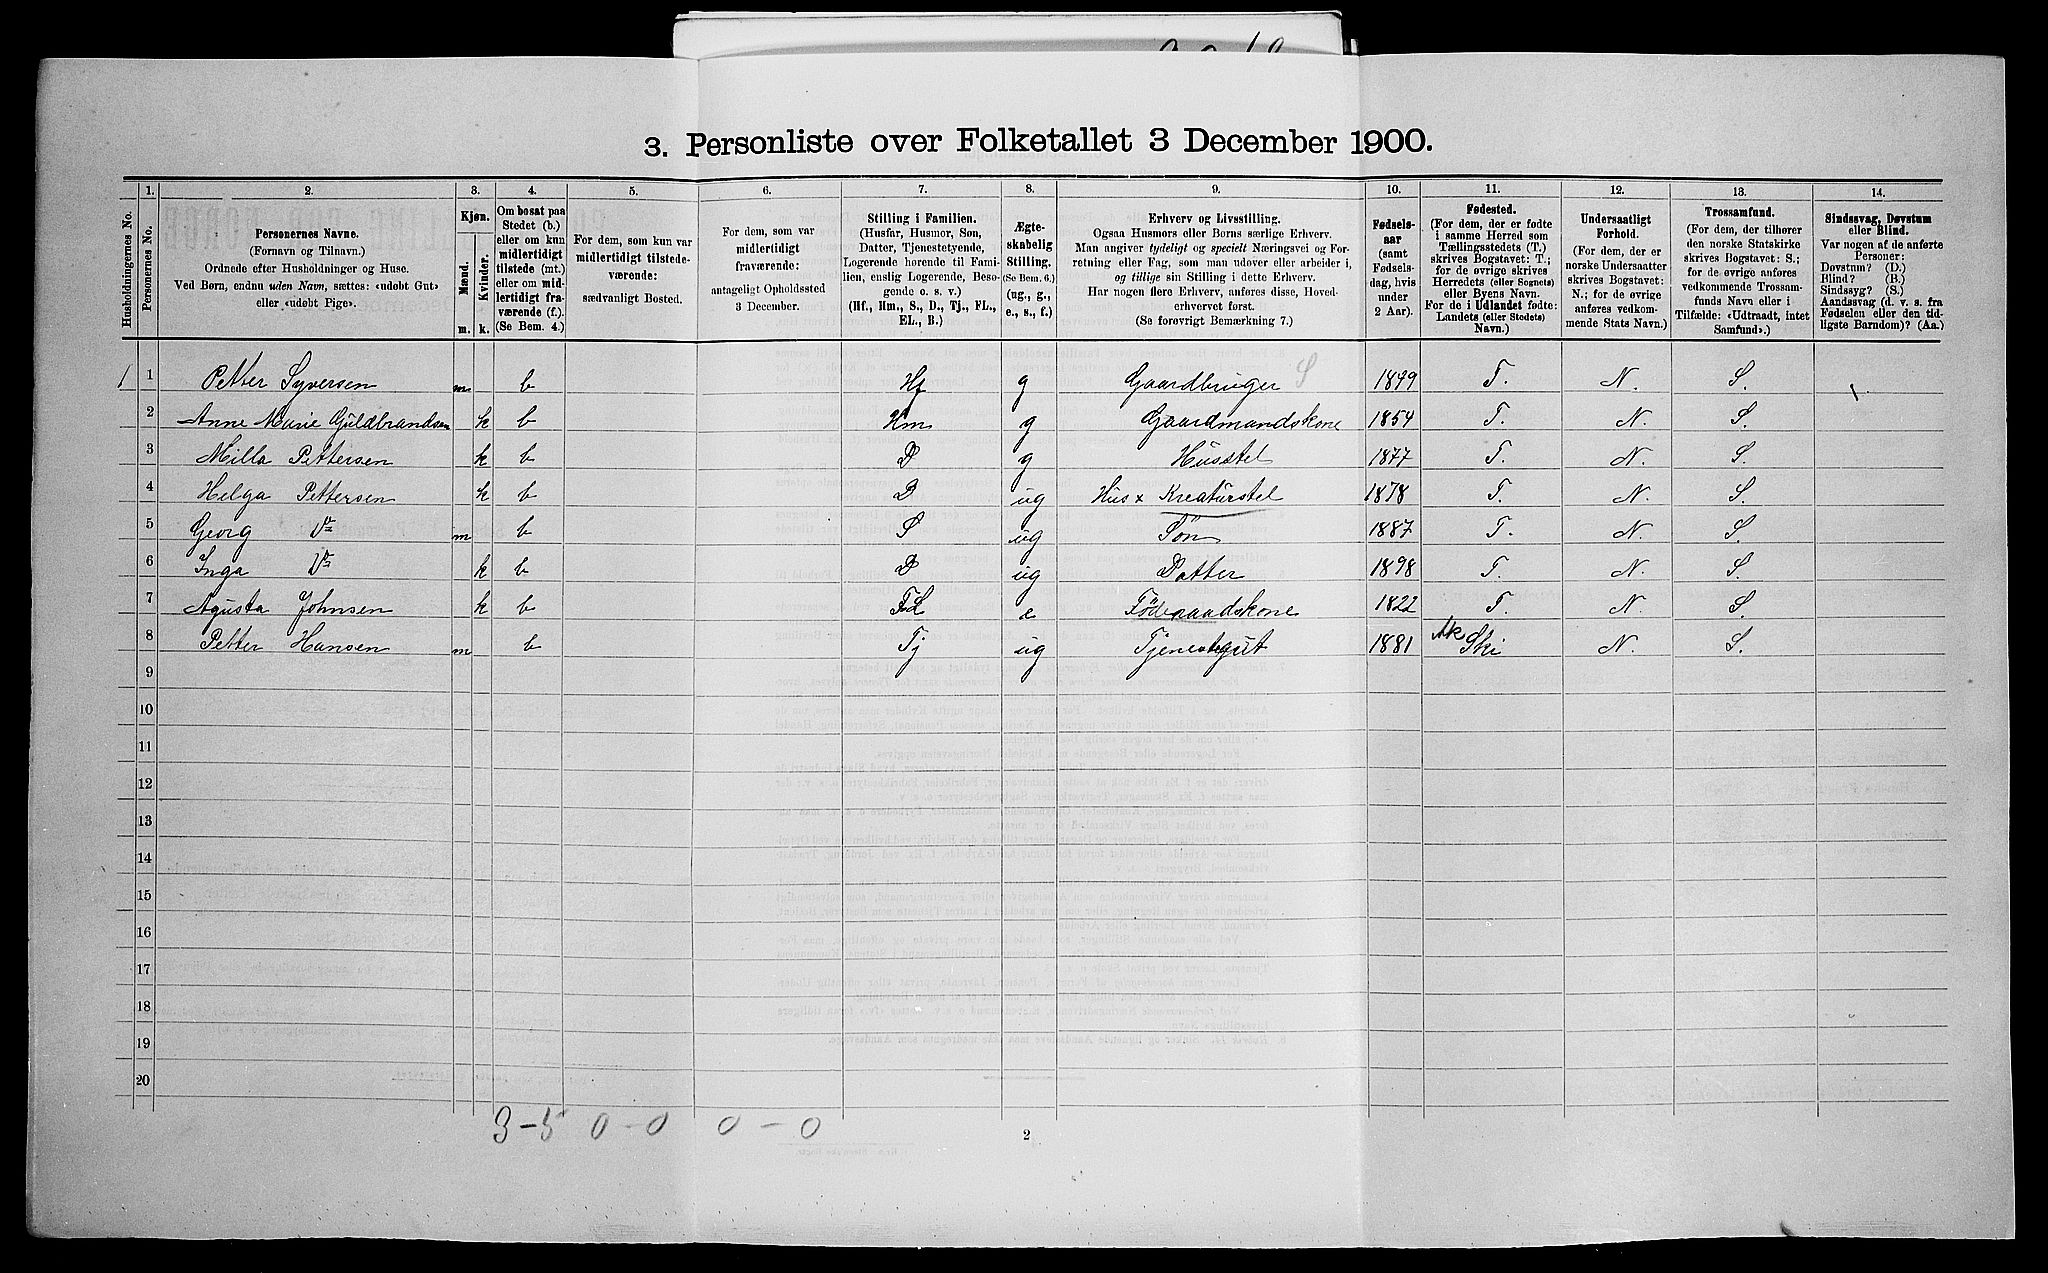 3. Personliste over Folketallet 3 December 1900.
1. 2. 3. 4. 5. 6. 7. 8. 9. 10. 11. 12. 13. 14.
Husholdningernes No.
Personernes No.
Personernes Navne.
(Fornavn og Tilnavn.)
Ordnede efter Husholdninger og Huse.
Ved Børn, endnu uden Navn, sættes: «udøbt Gut»
eller «udøbt Pige».
Kjøn.
Mænd.
Kvinder.
m. k.
Om bosat paa
Stedet (b.)
eller om kun
midlertidigt
tilstede (mt.)
eller om mid-
lertidigt fra-
værende (f.).
(Se Bem. 4.)
For dem, som kun var
midlertidigt tilstede-
værende:
sædvanligt Bosted.
For dem, som var
midlertidigt
fraværende:
antageligt Opholdssted
3 December.
Stilling i Familien.
(Husfar, Husmor, Søn,
Datter, Tjenestetyende,
Logerende hørende til Fami-
lien, enslig Logerende, Besø-
gende o. s. v.)
(Hf., Hm., S., D., Tj., FL.,
EL., B.)
Ægte-
skabelig
Stilling.
(Se Bem. 6.)
(ug., g.,
e., s., f.)
Erhverv og Livsstilling.
Ogsaa Husmors eller Børns særlige Erhverv.
Man angiver tydeligt og specielt Næringsvei og For-
retning eller Fag, som man udøver eller arbeider i,
og tillige sin Stilling i dette Erhverv.
Har nogen flere Erhverv, anføres disse, Hoved-
erhvervet først.
(Se forøvrigt Bemærkning 7.)
Fødsels-
aar
(samt
Fødsels-
dag, hvis
under
2 Aar).
Fødested.
(For dem, der er fødte
i samme Herred som
Tællingsstedets (T.)
skrives Bogstavet: T.;
for de øvrige skrives
Herredets (eller Sognets)
eller Byens Navn.
For de i Udlandet fødte:
Landets (eller Stedets)
Navn.)
Undersaatligt
Forhold.
(For dem, der er
norske Undersaatter
skrives Bogstavet:
N.; for de øvrige
anføres vedkom-
mende Stats Navn.)
Trossamfund.
(For dem, der tilhører
den norske Statskirke
skrives Bogstavet: S.;
for de øvrige anføres
vedkommende Trossam-
funds Navn eller i
Tilfælde: «Udtraadt, intet
Samfund».)
Sindssvag, Døvstum
eller Blind.
Var nogen af de anførte
Personer:
Døvstum? (D.)
Blind? (B.)
Sindssyg? (S.)
Aandssvag (d. v. s. fra
Fødselen eller den tid-
ligste Barndom)? (Aa.)
1 1 Petter Syversen m b Hf g Gaardbruger S 1839 T. N. S.
2 Anne Marie Guldbrandsen k b Hm g Gaardmandskone 1854 T. N. S.
3 Milla Pettersen k b D g Husstel 1877 T. N. S.
4 Helga Pettersen k b D ug Hus x Kreaturstel 1878 T. N. S.
5 Georg Do m b S ug Søn 1887 T. N. S.
6 Inga Do k b D ug Datter 1898 T. N. S.
7 Agusta Johnsen k b FL e Föderaadskone 1822 T. N. S.
8 Petter Hansen m b Tj ug Tjenestegut 1881 Ak Ski N. S.
9
10
11
12
13
14
15
16
17
18
19
20
3-5 0-0 0-0
2